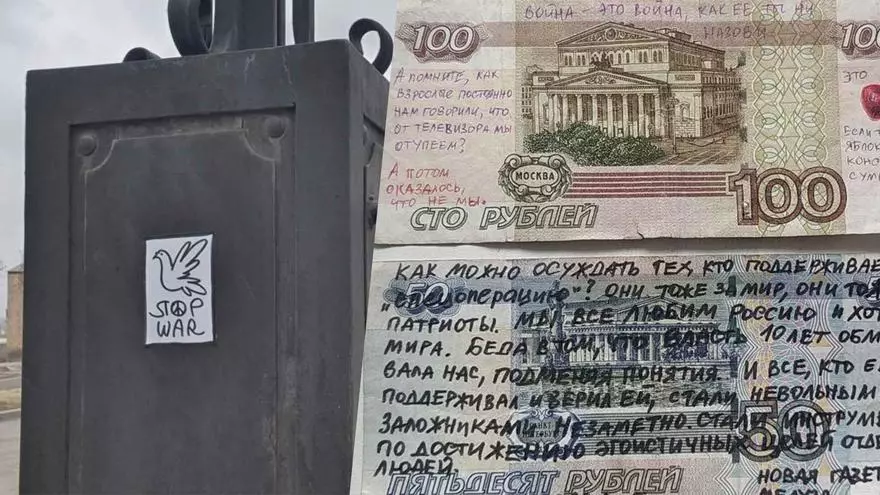 STOP
WAR
ВОЙНА – ЭТО ВОЙНА, КАК ЕЕ ТЫ НИ
НАЗОВИ
100
100
А ПОМНИТЕ, КАК
ВЗРОСЛЫЕ ПОСТОЯННО
НАМ ГОВОРИЛИ, ЧТО
ОТ ТЕЛЕВИЗОРА МЫ
ОТУПЕЕМ?
А ПОТОМ
ОКАЗАЛОСЬ,
ЧТО НЕ МЫ.
ЭТО
ЕСЛИ
ЯБЛОК
КОНС
СУМ
МОСКВА
100
СТО РУБЛЕЙ
КАК МОЖНО ОСУЖДАТЬ ТЕХ, КТО ПОДДЕРЖИВАЕ
"СПЕЦОПЕРАЦИЮ"? ОНИ ТОЖЕ ЗА МИР, ОНИ ТОЖ
ПАТРИОТЫ. МЫ ВСЕ ЛЮБИМ РОССИЮ И ХОТ
МИРА. БЕДА В ТОМ, ЧТО ВЛАСТЬ 10 ЛЕТ ОБМ
ВАЛА НАС, ПОДМЕНЯЯ ПОНЯТИЯ. И ВСЕ, КТО ЕЁ
ПОДДЕРЖИВАЛ И ВЕРИЛ ЕЙ, СТАЛИ НЕВОЛЬНЫМ
ЗАЛОЖНИКАМИ. НЕЗАМЕТНО СТАЛИ ИНСТРУМЕ
ПО ДОСТИЖЕНИЮ ЭГОИСТИЧНЫХ ЦЕЛЕЙ ОТДЕ
ЛЮДЕЙ.
50
50
ПЯТЬДЕСЯТ РУБЛЕЙ
НОВАЯ ГАЗЕТ